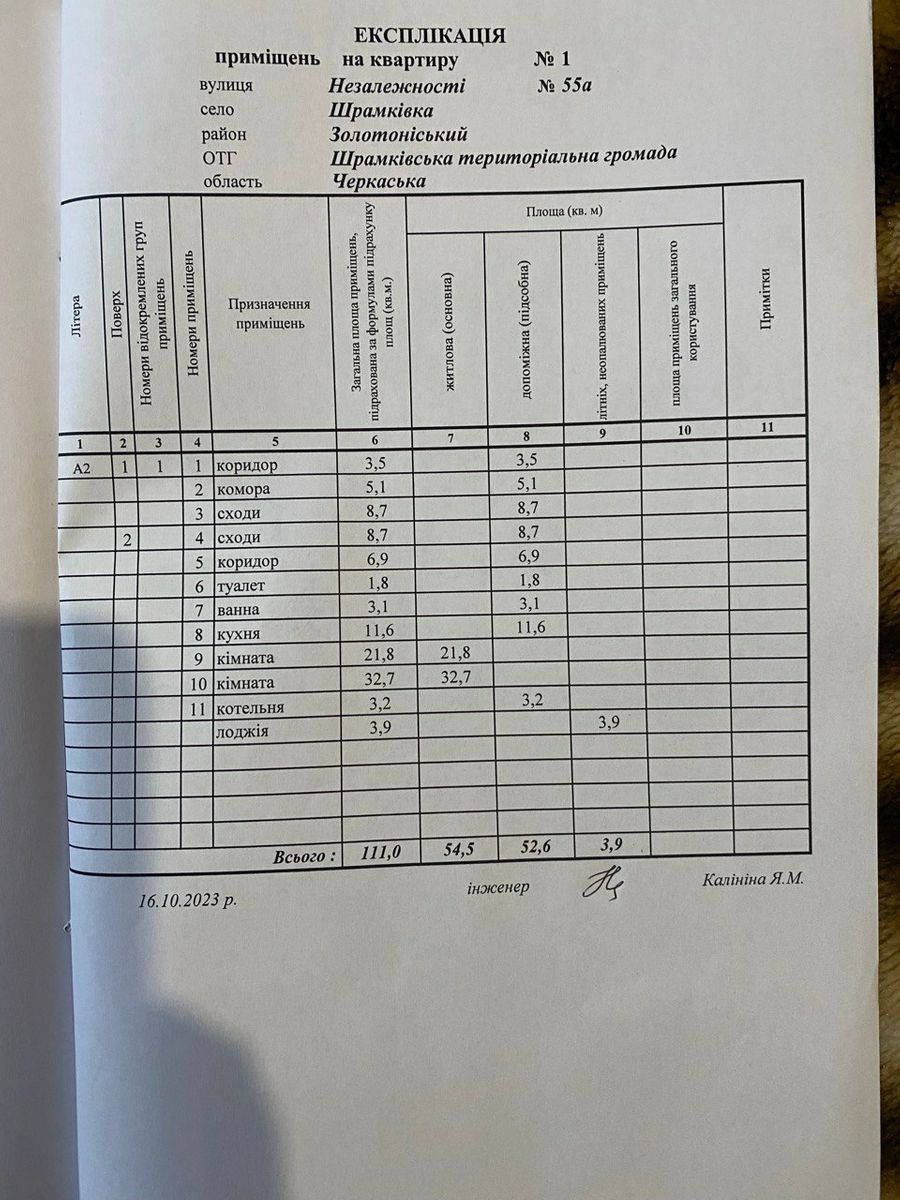 ЕКСПЛІКАЦІЯ
приміщень на квартиру № 1
вулиця Незалежності № 55а
село Шрамківка
район Золотоніський
ОТГ Шрамківська територіальна громада
область Черкаська
Літера
Поверх
Номери відокремлених груп приміщень
Номери приміщень
Призначення приміщень
Загальна площа приміщень, підрахована за формулами підрахунку площ (кв.м.)
Площа (кв. м)
житлова (основна)
допоміжна (підсобна)
літніх, неопалюваних приміщень
площа приміщень загального користування
Примітки
1 2 3 4 5 6 7 8 9 10 11
А2 1 1 1 коридор 3,5 3,5
2 комора 5,1 5,1
3 сходи 8,7 8,7
2 4 сходи 8,7 8,7
5 коридор 6,9 6,9
6 туалет 1,8 1,8
7 ванна 3,1 3,1
8 кухня 11,6 11,6
9 кімната 21,8 21,8
10 кімната 32,7 32,7
11 котельня 3,2 3,2
лоджія 3,9 3,9
Всього : 111,0 54,5 52,6 3,9
16.10.2023 р. інженер Калініна Я.М.